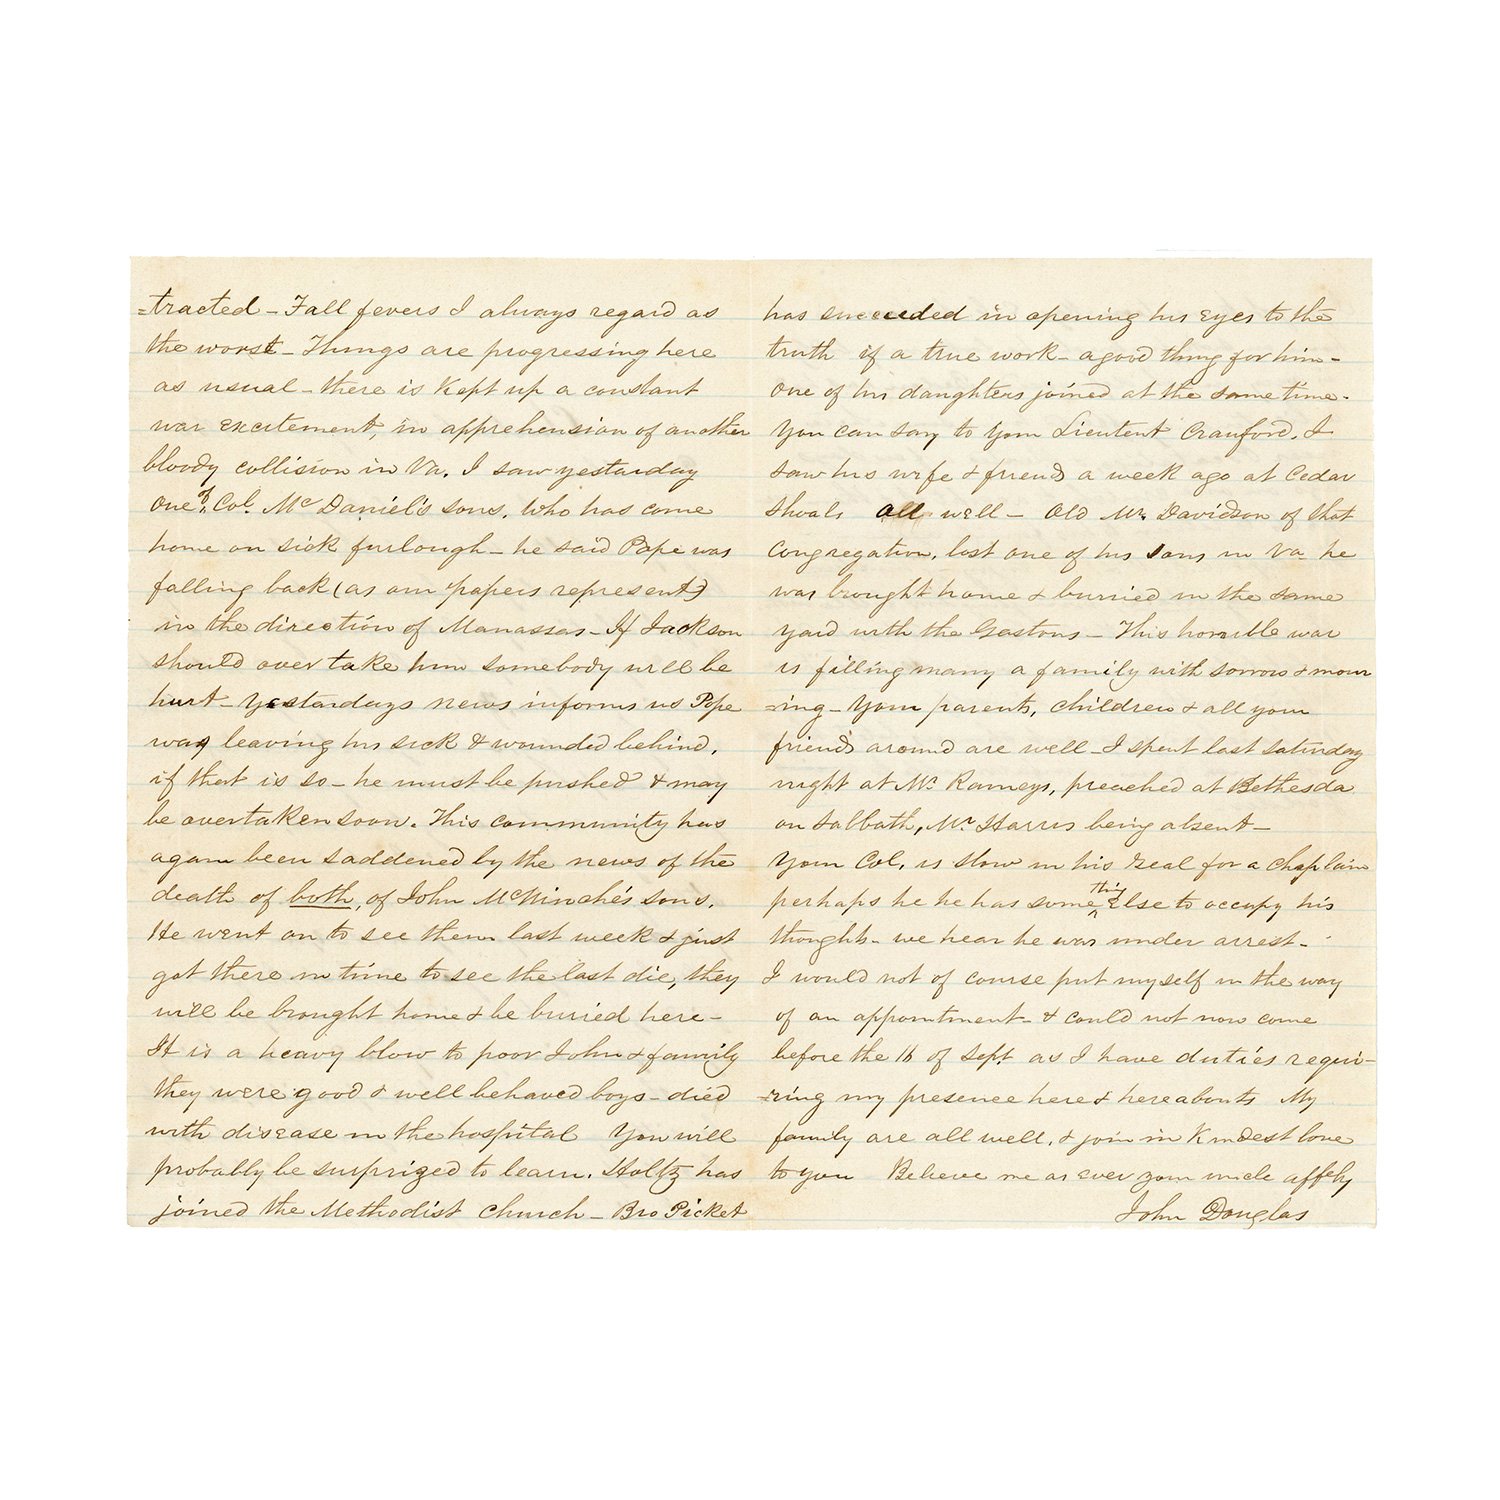 =tracted - Fall fevers I always regard as
the worst - Things are progressing here
as usual - there is kept up a constant
war excitement, in apprehension of another
bloody collision in Va. I saw yestarday
one of Col. McDaniel's sons, who has come
home on sick furlough - he said Pope was
falling back (as our papers represent)
in the direction of Manassas - If Jackson
should over take him somebody will be
hurt - Yestardays news informs us Pope
was leaving his sick & wounded behind,
if that is so - he must be pushed & may
be overtaken soon. This community has
again been saddened by the news of the
death of both, of John McNinche's sons.
He went on to see them last week & just
got there in time to see the last die, they
will be brought home & be buried here -
It is a heavy blow to poor John & family
they were good & well behaved boys - died
with disease in the hospital You will
probably be surprized to learn, Holtz has
joined the Methodist Church - Bro Picket
has succeeded in opening his eyes to the
truth if a true work - a good thing for him -
One of his daughters joined at the same time -
You can say to your Lieutent Crauford, I
saw his wife & friends a week ago at Cedar
Shoals all well - Old Mr. Davidson of that
Congregation, lost one of his sons in Va - he
was brought home & burried in the same
yard with the Gastons - This horrible war
is filling many a family with sorrow & mour
=ing - Your parents, children & all your
friends around are well - I spent last saturday
night at Mr. Rameys, preached at Bethesda
on Sabbath, Mr. Harris being absent -
Your Col, is slow in his zeal for a chaplain
perhaps he he has some thing else to occupy his
thoughts - we hear he was under arrest -
I would not of course put myself in the way
of an appointment - & could not now come
before the 16 of Sept. as I have duties requi-
-ring my presence here & hereabouts My
family are all well, & join in kindest love
to you Believe me as ever your uncle affcly
John Douglas